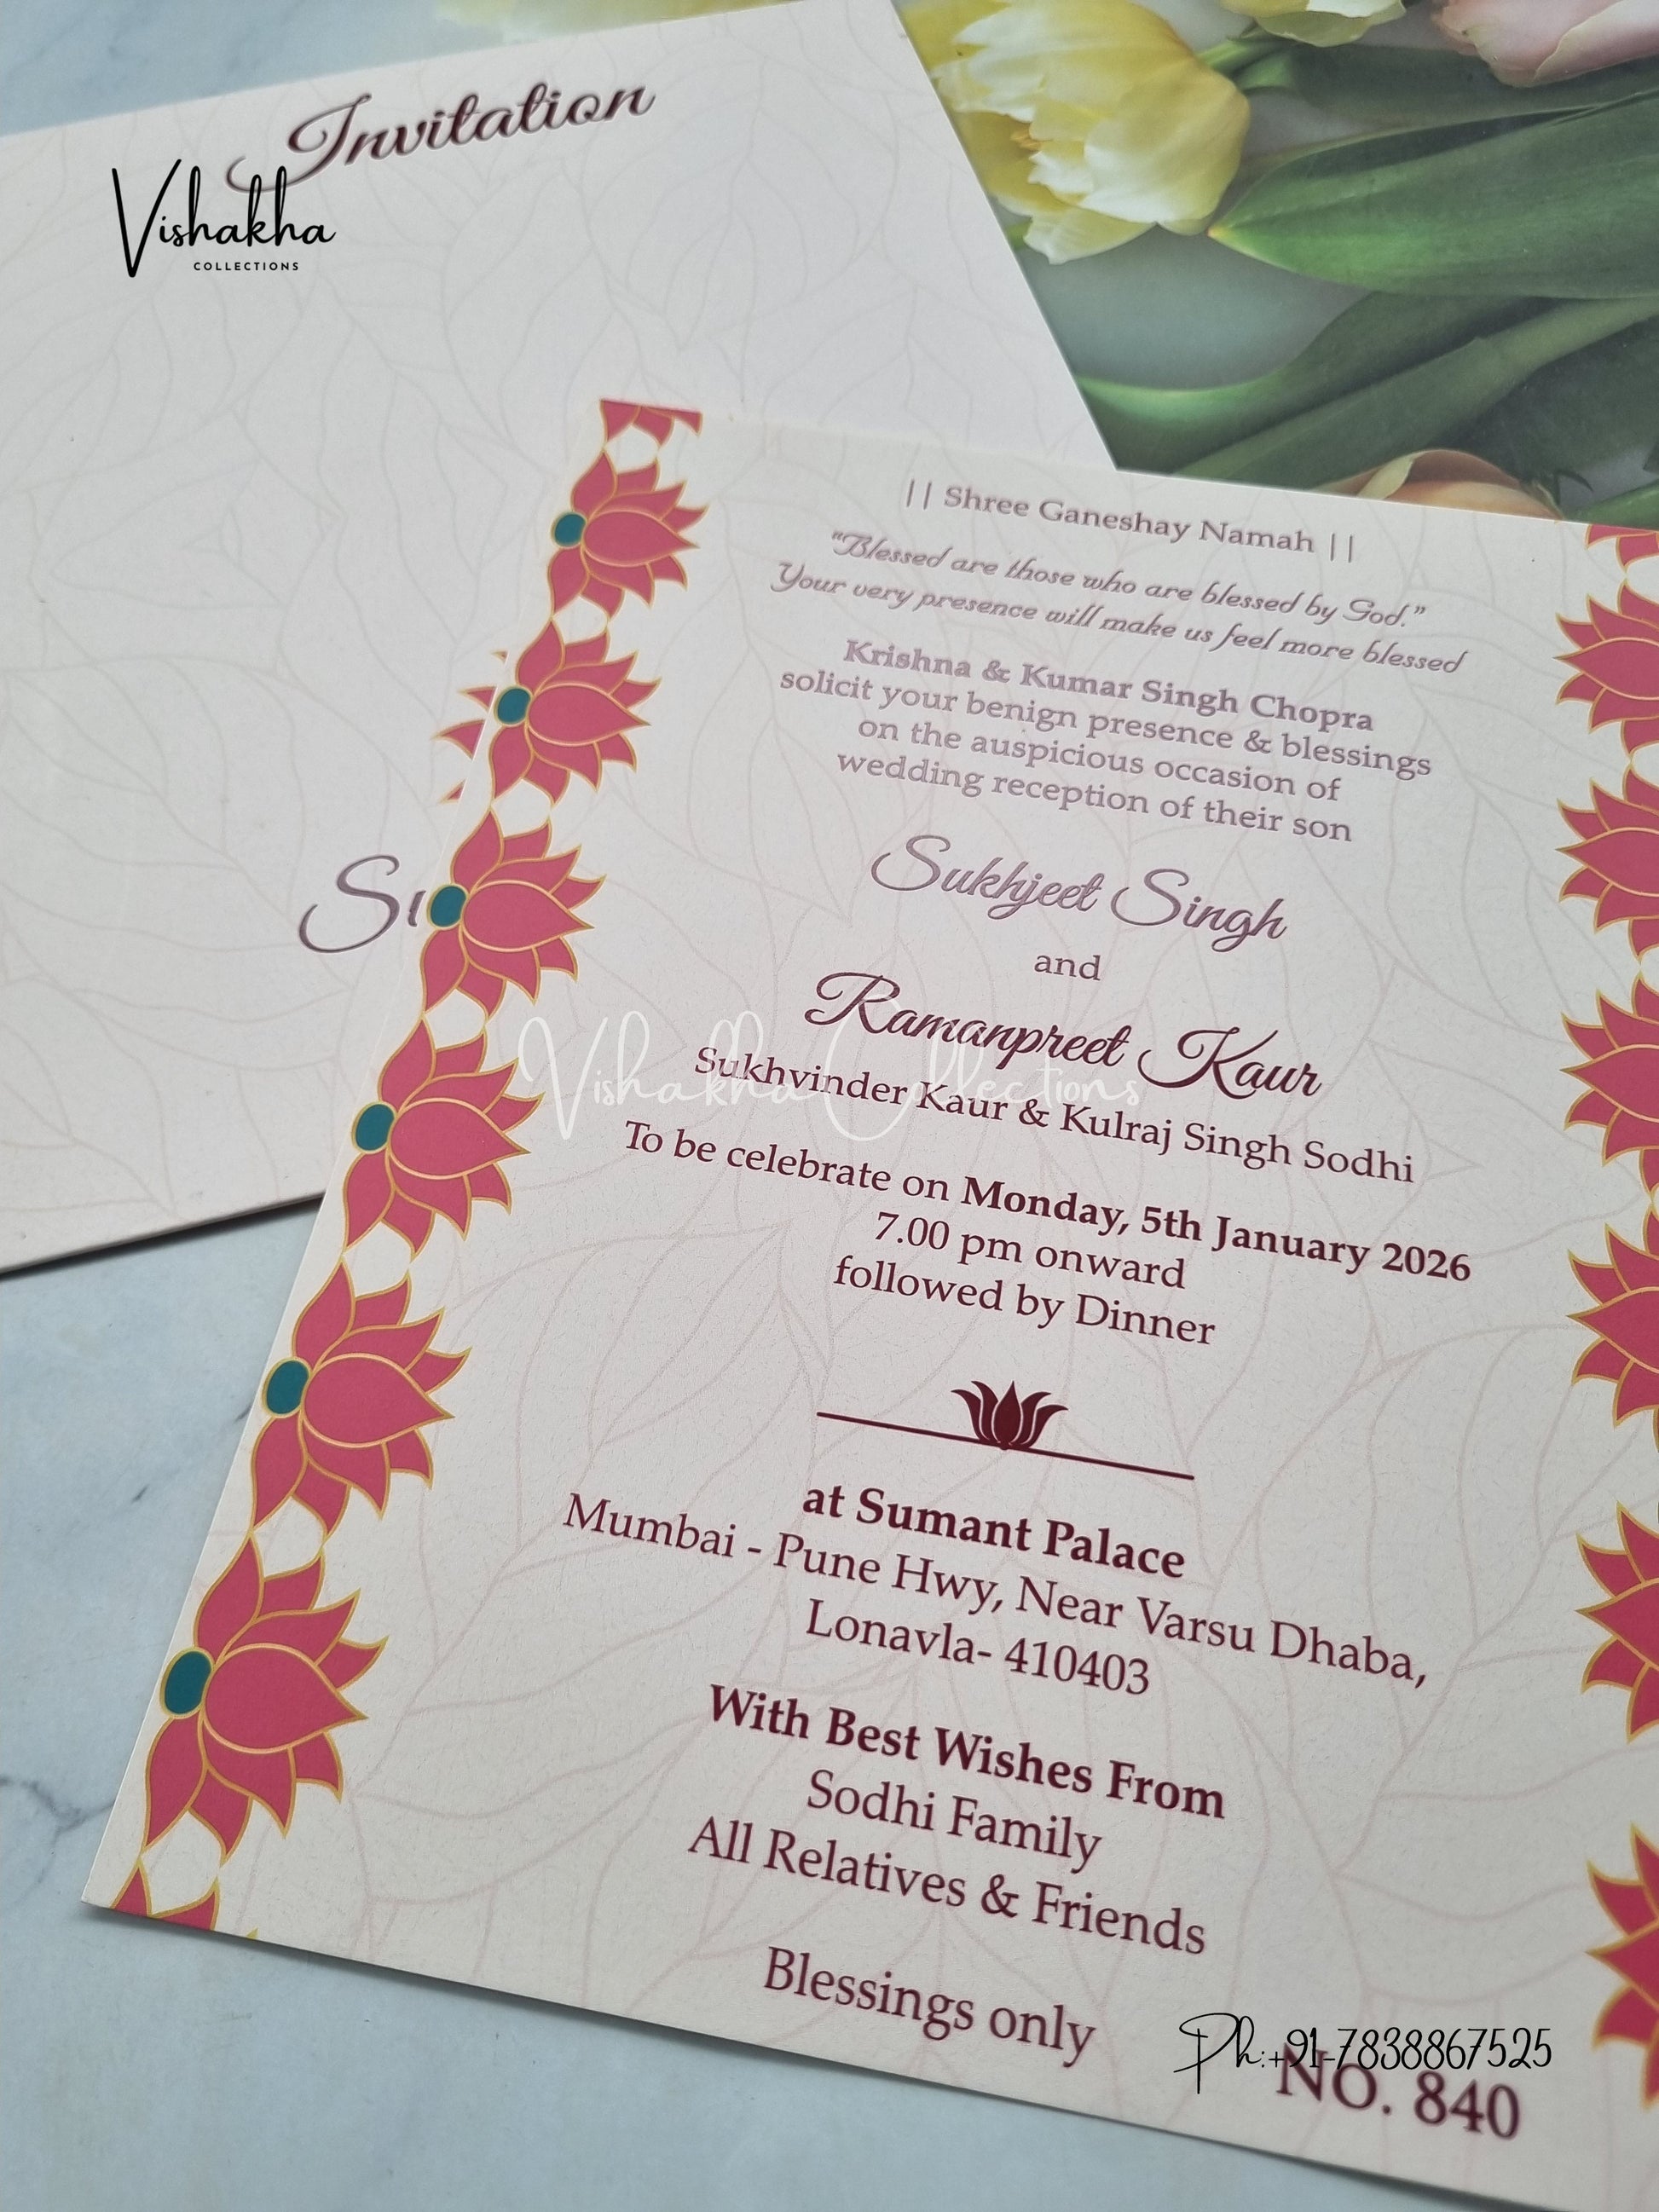 Invitation
Vishakha
COLLECTIONS
|| Shree Ganeshay Namah ||
"Blessed are those who are blessed by God."
Your very presence will make us feel more blessed
Krishna & Kumar Singh Chopra
solicit your benign presence & blessings
on the auspicious occasion of
wedding reception of their son
Sukhjeet Singh
and
Ramanpreet Kaur
Vishakha Collections
Sukhvinder Kaur & Kulraj Singh Sodhi
To be celebrate on Monday, 5th January 2026
7.00 pm onward
followed by Dinner
at Sumant Palace
Mumbai - Pune Hwy, Near Varsu Dhaba,
Lonavla- 410403
With Best Wishes From
Sodhi Family
All Relatives & Friends
Blessings only
Ph:+91-7838867525
NO. 840